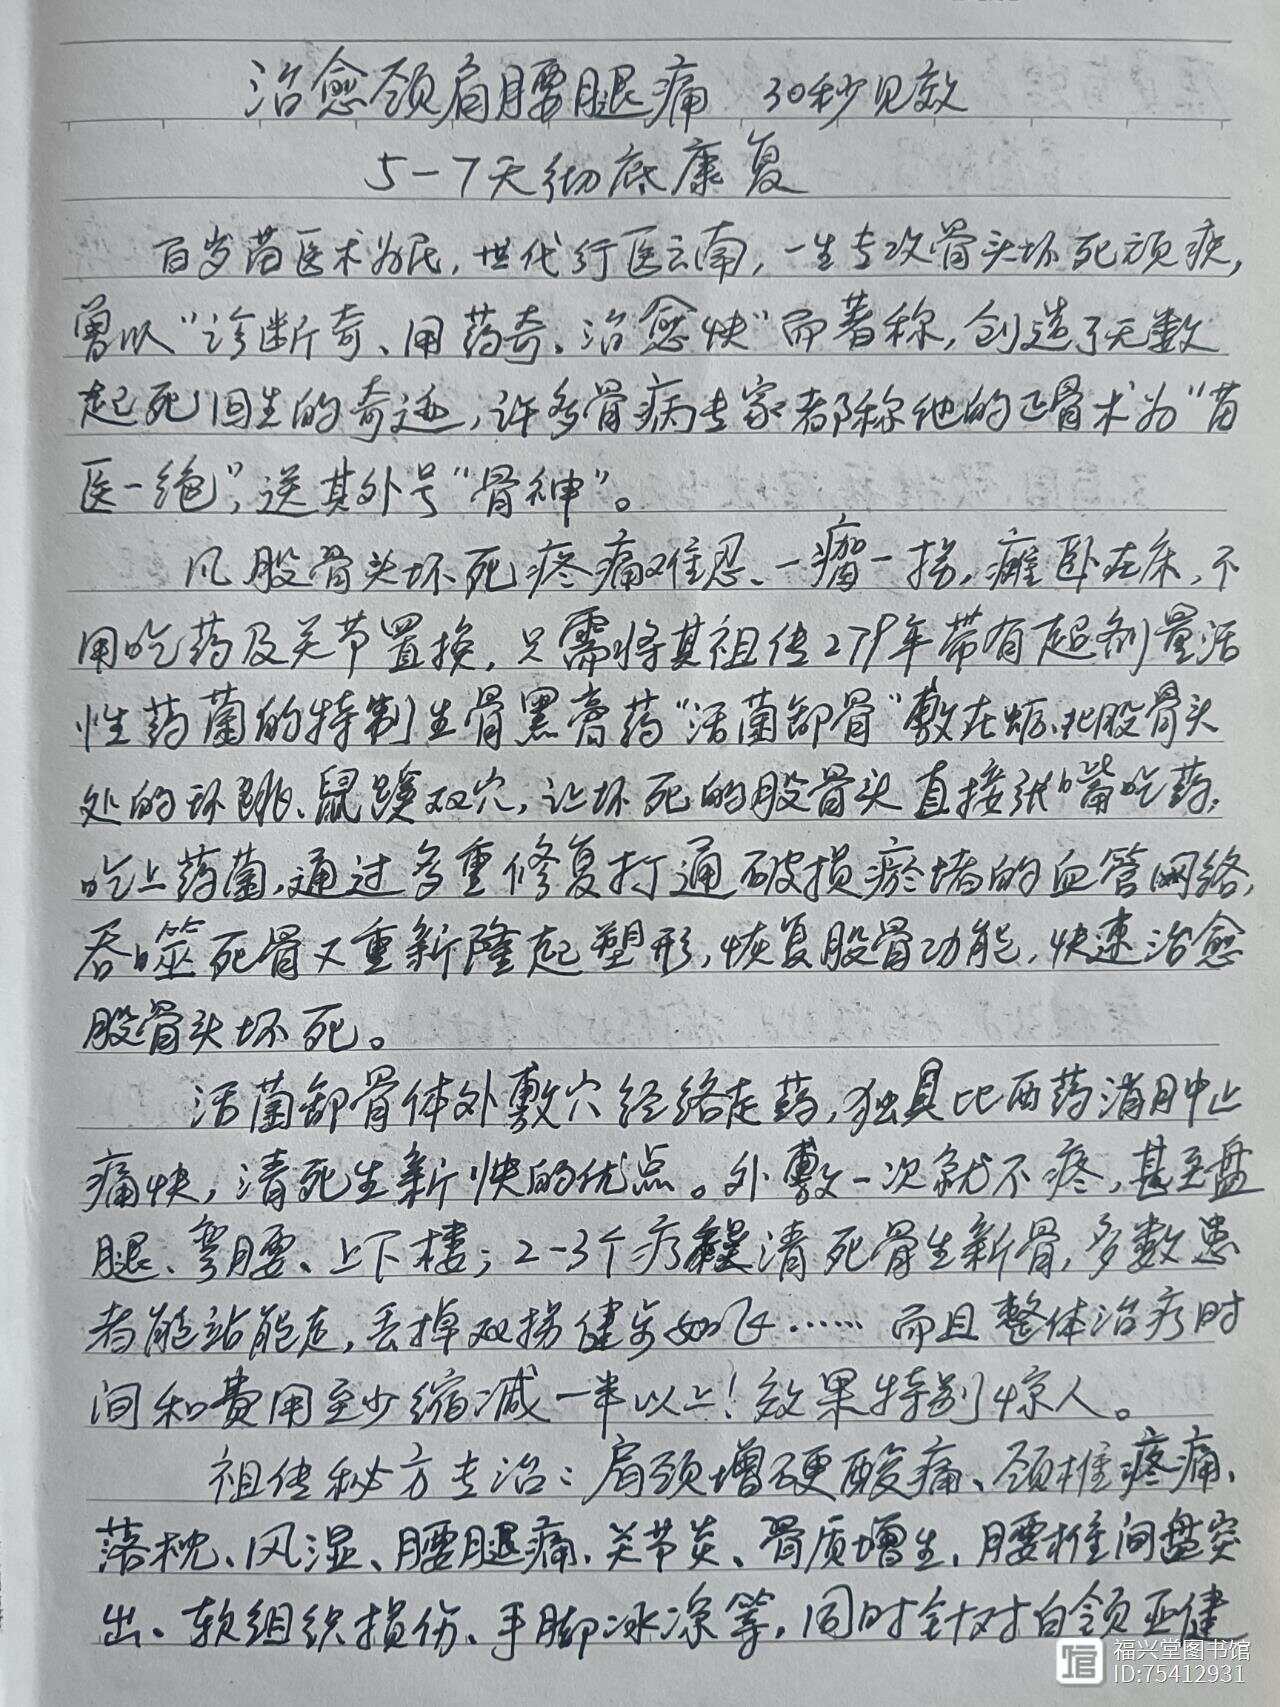 治愈颈肩腰腿痛 30秒见效
5-7天彻底康复
百岁苗医术为民，世代行医云南，一生专攻骨头坏死顽疾，
曾以“诊断奇、用药奇、治愈快”而著称，创造了无数
起死回生的奇迹，许多骨病专家都称他的正骨术为“苗
医一绝”，送其外号“骨神”。
凡股骨头坏死疼痛难忍、一瘸一拐，瘫卧在床，不
用吃药及关节置换，只需将其祖传279年带有超剂量活
性药菌的特制生骨黑膏药“活菌卸骨”敷在 股骨头
处的环跳、鼠蹊双穴，让坏死的股骨头直接张嘴吃药，
吃上药菌，通过多重修复打通破损瘀堵的血管网络，
吞噬死骨又重新隆起塑形，恢复股骨功能，快速治愈
股骨头坏死。
活菌卸骨体外敷穴经络走药，独具比西药消肿止
痛快，清死生新快的优点。外敷一次就不疼，甚至盘
腿、弯腰、上下楼；2-3个疗程清死骨生新骨，多数患
者能站能走，丢掉双拐健步如飞……而且整体治疗时
间和费用至少缩减一半以上！效果特别惊人。
祖传秘方专治：肩颈增硬酸痛、颈椎疼痛、
落枕、风湿、腰腿痛、关节炎、骨质增生、腰椎间盘突
出、软组织损伤、手脚冰凉等，同时针对白领亚健
福兴堂图书馆
ID:75412931